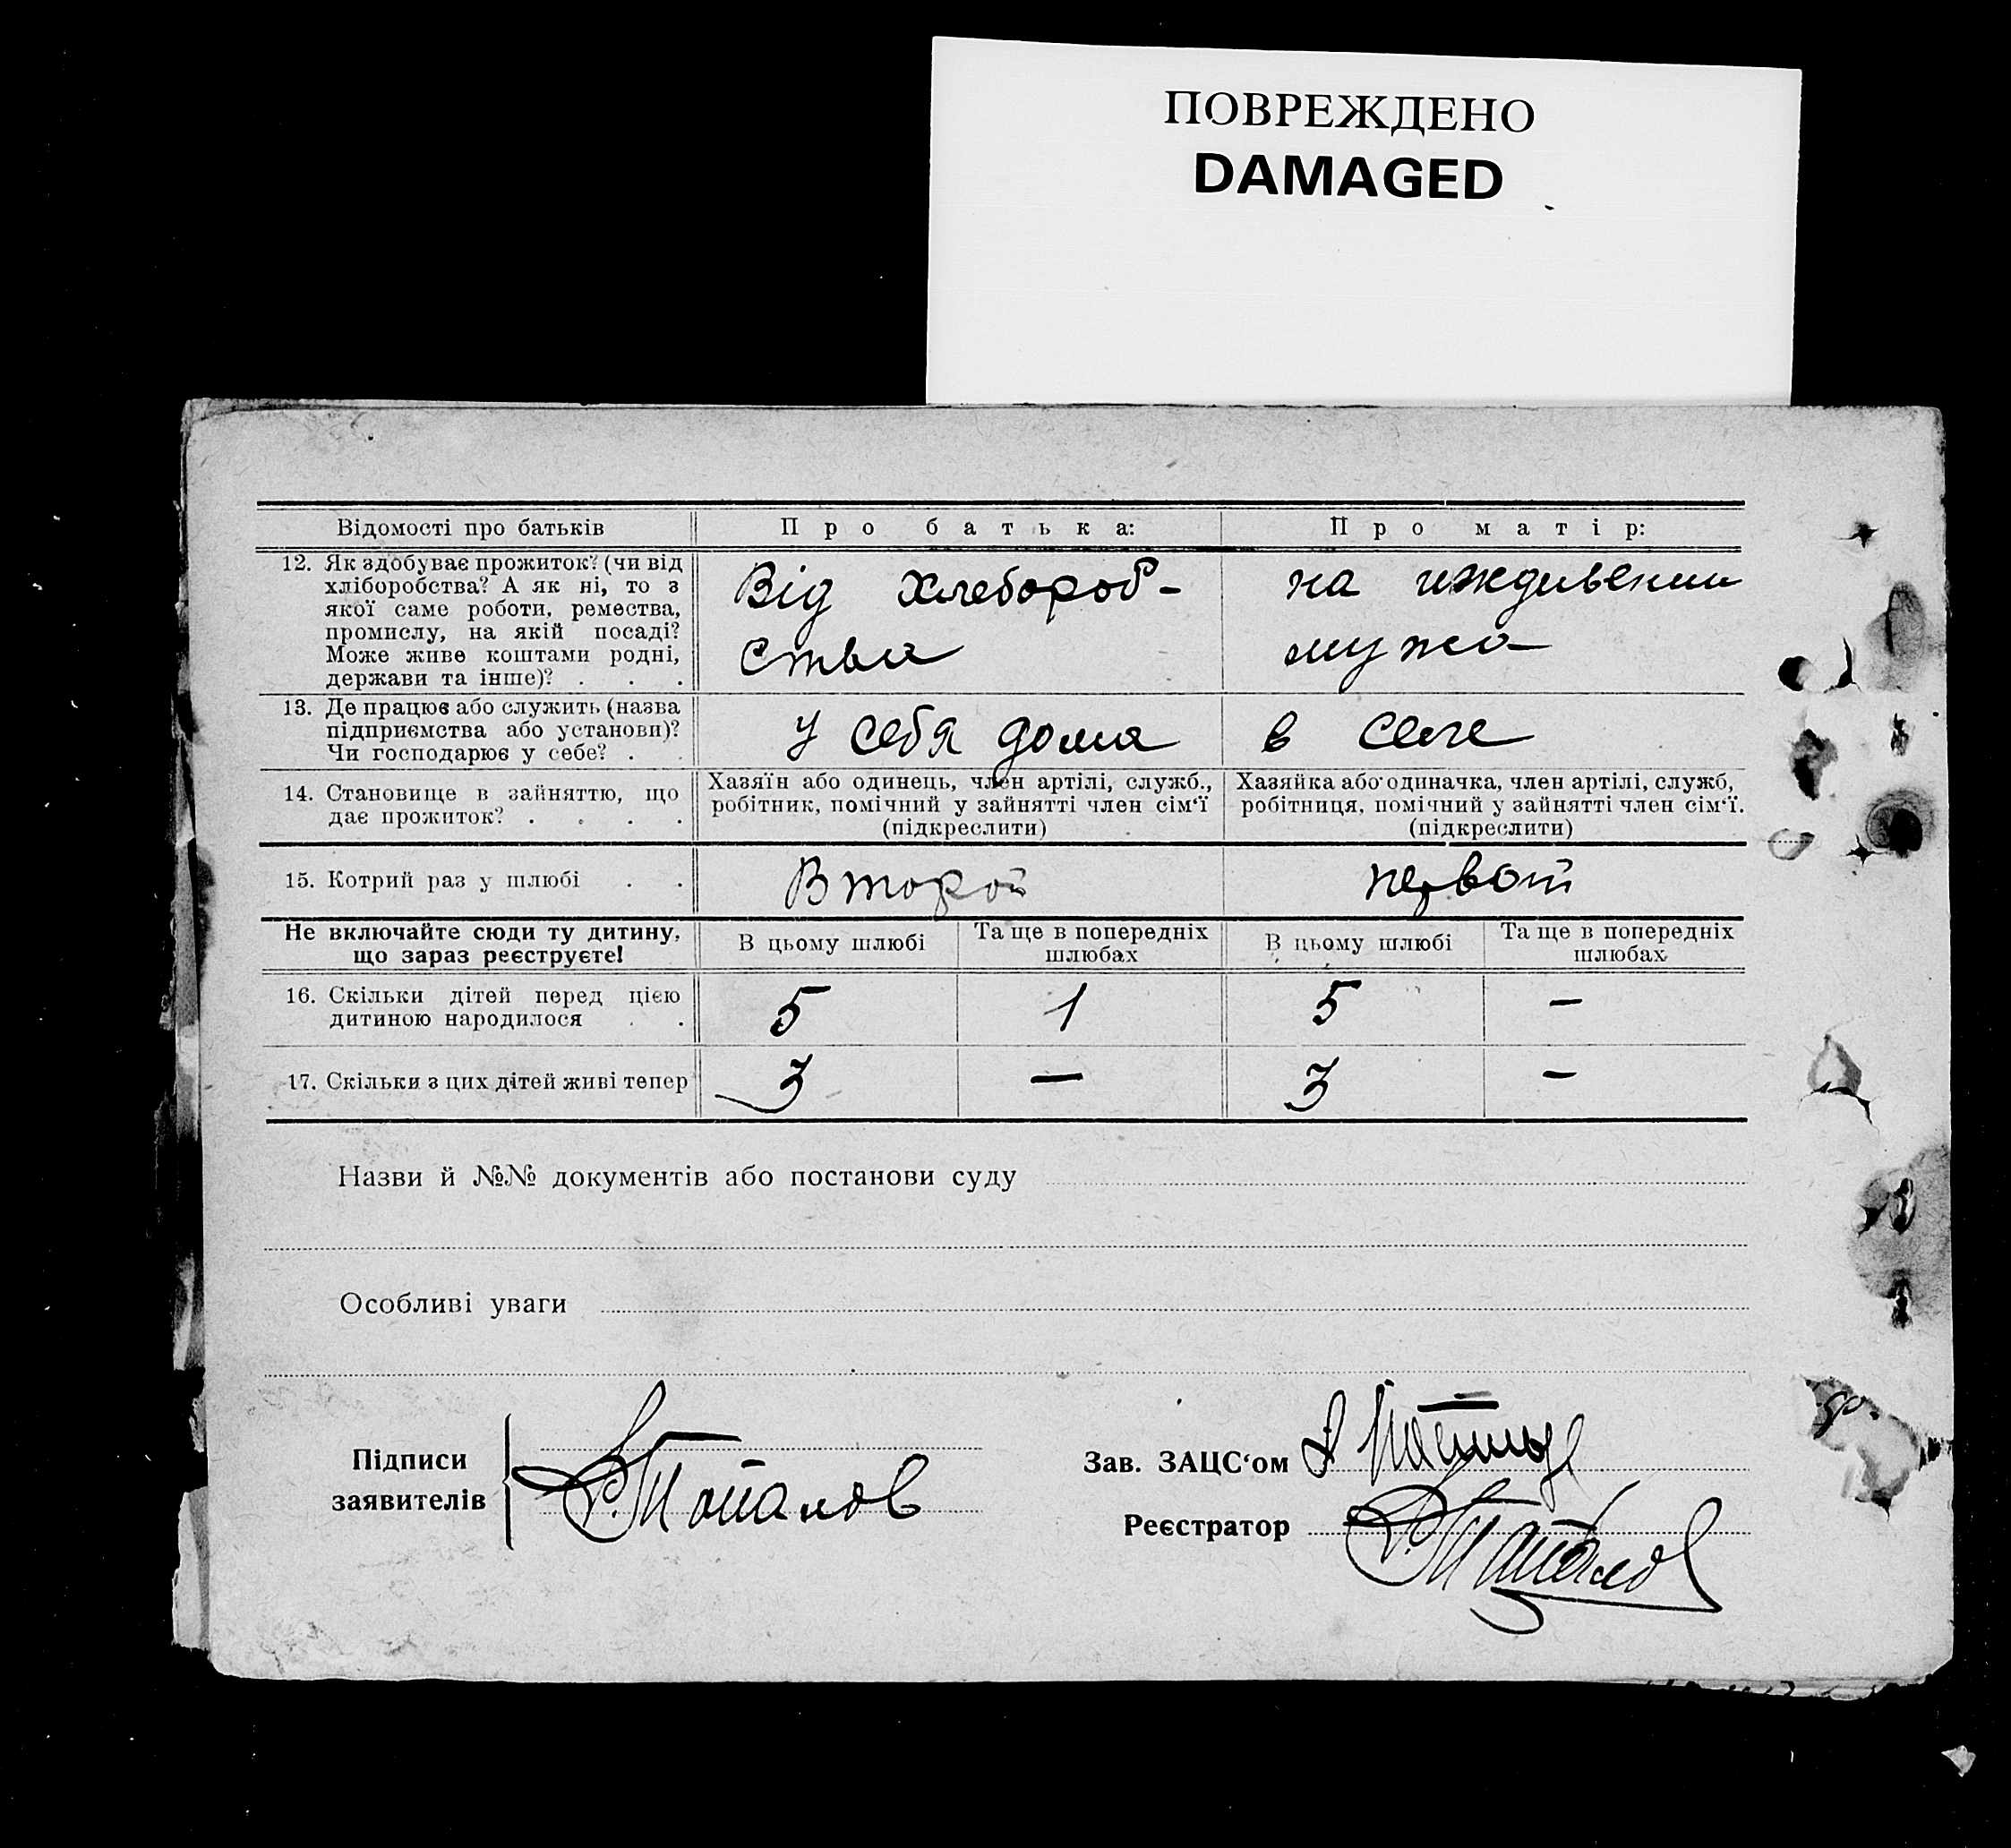 ПОВРЕЖДЕНО
DAMAGED
Відомості про батьків
Про батька:
Про матір:
12. Як здобуває прожиток? (чи від
хліборобства? А як ні, то з
якої саме роботи, ремества,
промислу, на якій посаді?
Може живе коштами родні,
держави та інше)? . . .
Від хлебороб-
ства
на иждивении
мужа
13. Де працює або служить (назва
підприємства або установи)?
Чи господарює у себе? . .
У себя дома
в селе
14. Становище в зайняттю, що
дає прожиток? . . . .
Хазяїн або одинець, член артілі, служб.,
робітник, помічний у зайнятті член сім'ї
(підкреслити)
Хазяйка або одиначка, член артілі, служб,
робітниця, помічний у зайнятті член сім'ї.
(підкреслити)
15. Котрий раз у шлюбі . .
Второй
первой
Не включайте сюди ту дитину,
що зараз реєструєте!
В цьому шлюбі
Та ще в попередніх
шлюбах
В цьому шлюбі
Та ще в попередніх
шлюбах
16. Скільки дітей перед цією
дитиною народилося . .
5
1
5
—
17. Скільки з цих дітей живі тепер
3
—
3
—
Назви й №№ документів або постанови суду
Особливі уваги
Підписи
заявителів
Топалов
Зав. ЗАЦС'ом
Реєстратор
Топалов